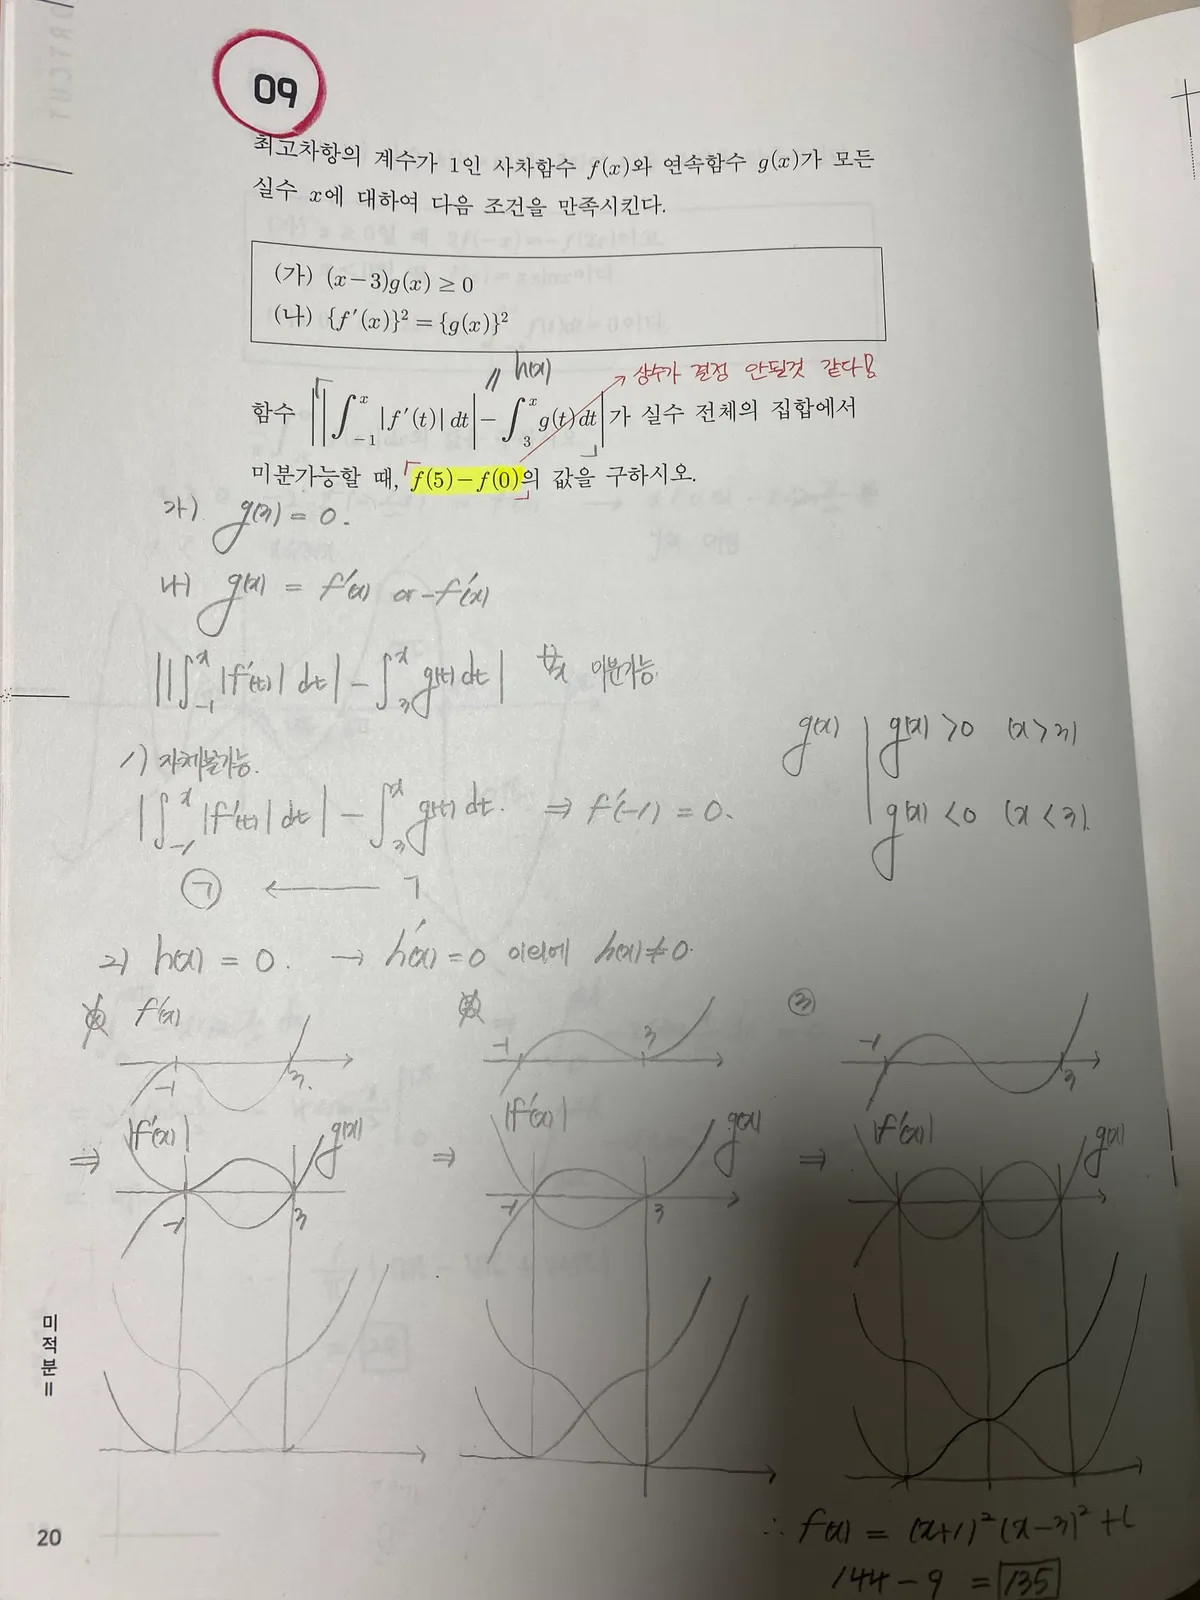 09
최고차항의 계수가 1인 사차함수 f(x)와 연속함수 g(x)가 모든
실수 x에 대하여 다음 조건을 만족시킨다.
(가) (x−3)g(x) ≥ 0
(나) {f′(x)}² = {g(x)}²
‖ h(x)
상수가 결정 안될것 같다!
함수 ||∫₋₁ˣ |f′(t)| dt| − ∫₃ˣ g(t) dt|가 실수 전체의 집합에서
미분가능할 때, f(5)−f(0)의 값을 구하시오.
가) g(3) = 0.
나) g(x) = f′(x) or −f′(x)
||∫₋₁ˣ |f′(t)| dt| − ∫₃ˣ g(t) dt| ∀x 미분가능.
g(x) | g(x) >0 (x>3)
g(x) <0 (x<3).
1) 자체불가능.
|∫₋₁ˣ |f′(t)| dt| − ∫₃ˣ g(t) dt. ⇒ f′(−1) = 0.
㉠ ← ㄱ
2) h(x) = 0. → h′(x) = 0 이외에 h(x) ≠ 0.
f′(x)
−1 3.
−1 3
③
−1 3
⇒ |f′(x)| g(x)
−1 3
⇒ |f′(x)| g(x)
−1 3
⇒ |f′(x)| g(x)
미적분 II
20
∴ f(x) = (x+1)²(x−3)² + C
144 − 9 = 135